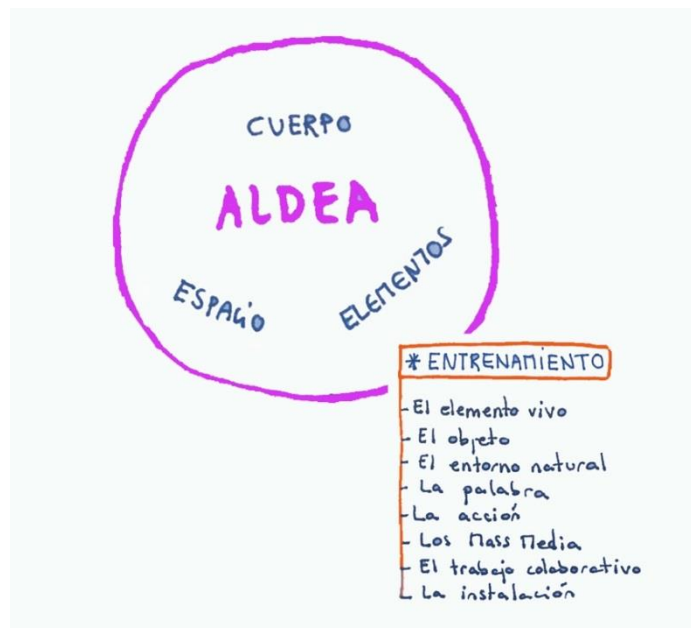 CUERPO
ALDEA
ESPACIO
ELEMENTOS
* ENTRENAMIENTO
- El elemento vivo
- El objeto
- El entorno natural
- La palabra
- La acción
- Los Mass Media
- El trabajo colaborativo
- La instalación